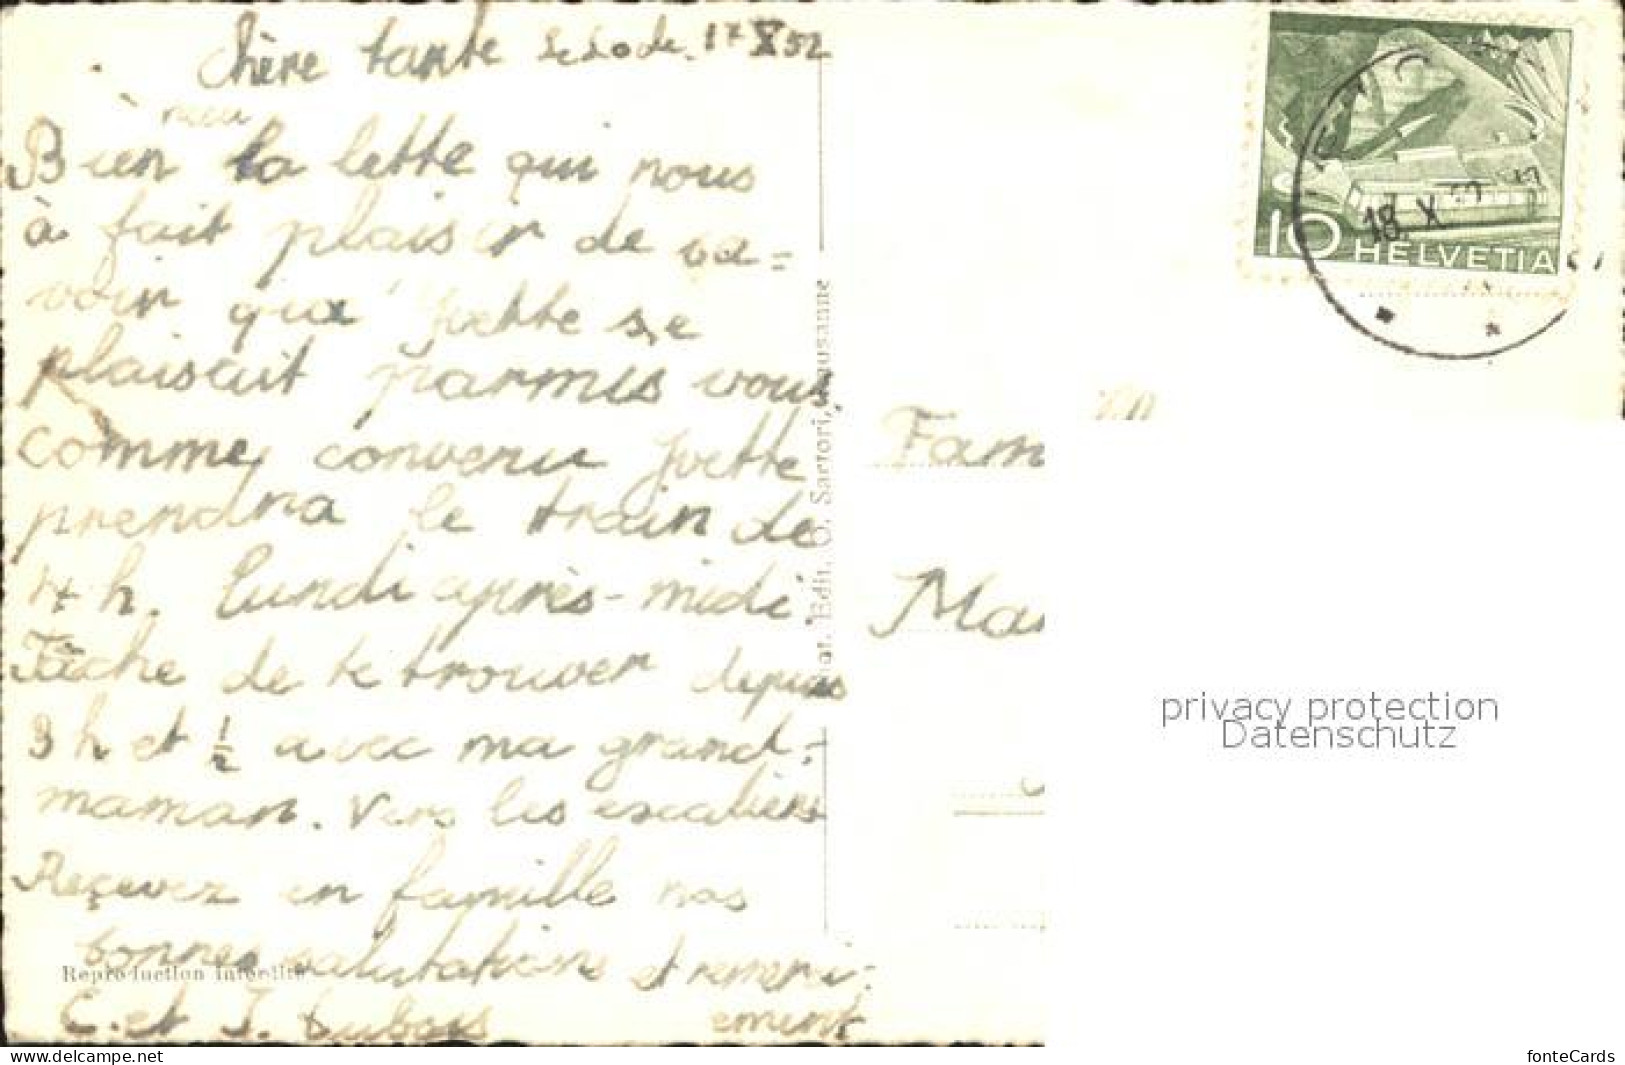 Chère tante Le Locle. 17 X 52
reçu
Bien ta lettre qui nous
à fait plaisir de sa=
voir que Yvette se
plaisait parmis vous.
comme convenu Yvette
prendra le train de
h. Lundi après-midi
Tâche de te trouver depuis
3 h et ½ avec ma grand=
maman. Vers les escaliers
Reçevez en famille nos
bonnes salutations et remerci=
ement
E. et J. Dubois
Reproduction interdite
Edit. O. Sartori, Lausanne
10 HELVETIA
18. X. 52
Fam
Ma
privacy protection
Datenschutz
www.delcampe.net
fonteCards